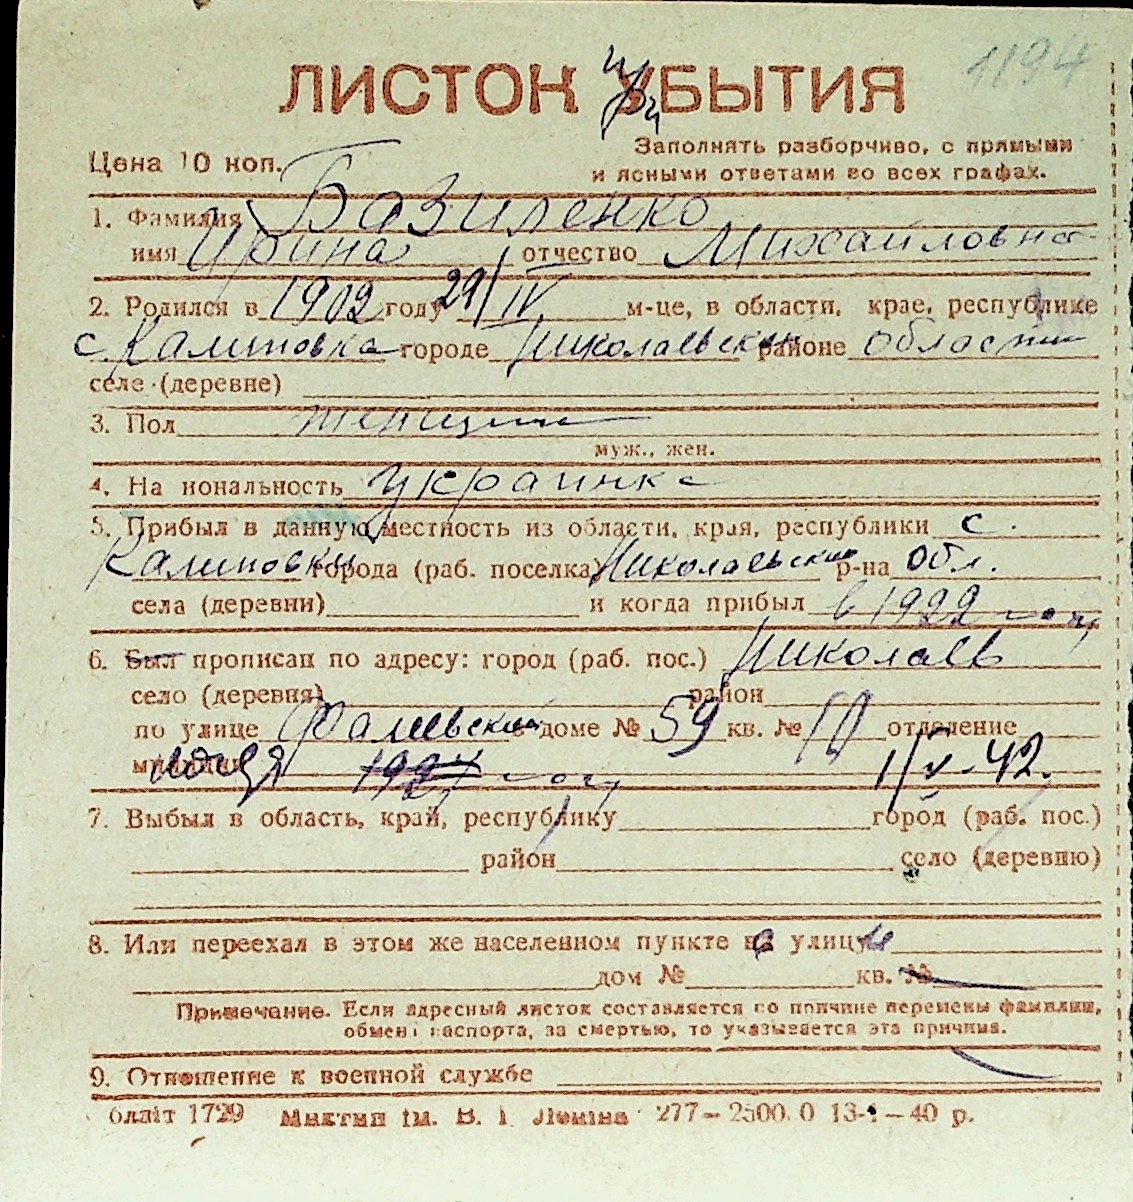 1194
ЛИСТОК УБЫТИЯ
При
Цена 10 коп.
Заполнять разборчиво, с прямыми
и ясными ответами во всех графах.
1. Фамилия Базиленко
имя Ирина отчество Михайловна
2. Родился в 1902 году 29/IV м-це, в области, крае, республике
с. Калиновка городе Николаевской районе области
селе (деревне)
3. Пол женщина
муж., жен.
4. На иональность украинка
5. Прибыл в данную местность из области, края, республики с.
Калиновки города (раб. поселка) Николаевской р-на обл.
села (деревни) и когда прибыл в 1922 году
6. Был прописан по адресу: город (раб. пос.) Николаев
село (деревня) район
по улице Фалеевской доме № 59 кв. № отделение
милиции 192 году 1/V-42.
7. Выбыл в область, край, республику город (раб. пос.)
район село (деревню)
8. Или переехал в этом же населенном пункте с улицы
дом № кв. №
Примечание. Если адресный листок составляется по причине перемены фамилии,
обмена паспорта, за смертью, то указывается эта причина.
9. Отношение к военной службе
блліт 1729 Миктип ім. В. І. Леніна 277—2500.0 13-1—40 р.